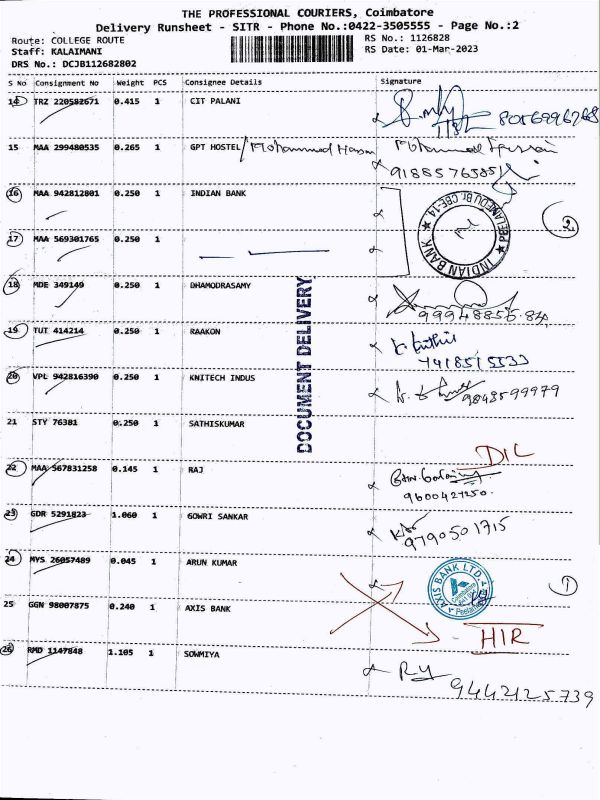 THE PROFESSIONAL COURIERS, Coimbatore
Delivery Runsheet - SITR - Phone No.:0422-3505555 - Page No.:2
Route: COLLEGE ROUTE RS No.: 1126828
Staff: KALAIMANI RS Date: 01-Mar-2023
DRS No.: DCJB112682802
S No Consignment No Weight PCS Consignee Details Signature
14 TRZ 220582671 0.415 1 CIT PALANI 8056996268
15 MAA 299480535 0.265 1 GPT HOSTEL / Mohammed Hassan
9188576585
16 MAA 942812801 0.250 1 INDIAN BANK
INDIAN BANK ★ PEELAMEDU Br. CBE-14 ★
2
17 MAA 569301765 0.250 1
18 MDE 349149 0.250 1 DHAMODRASAMY
9994885684
19 TUT 414214 0.250 1 RAAKON
7418515533
20 VPL 942816390 0.250 1 KNITECH INDUS 9843599979
DOCUMENT DELIVERY
21 STY 76381 0.250 1 SATHISKUMAR
D/L
22 MAA 567831258 0.145 1 RAJ
9600421250
23 GDR 5291823 1.060 1 GOWRI SANKAR
9790501715
24 MYS 26057489 0.045 1 ARUN KUMAR
AXIS BANK LTD.
1
25 GGN 98007875 0.240 1 AXIS BANK
HIR
26 RMD 1147848 1.105 1 SOWMIYA
9442125739